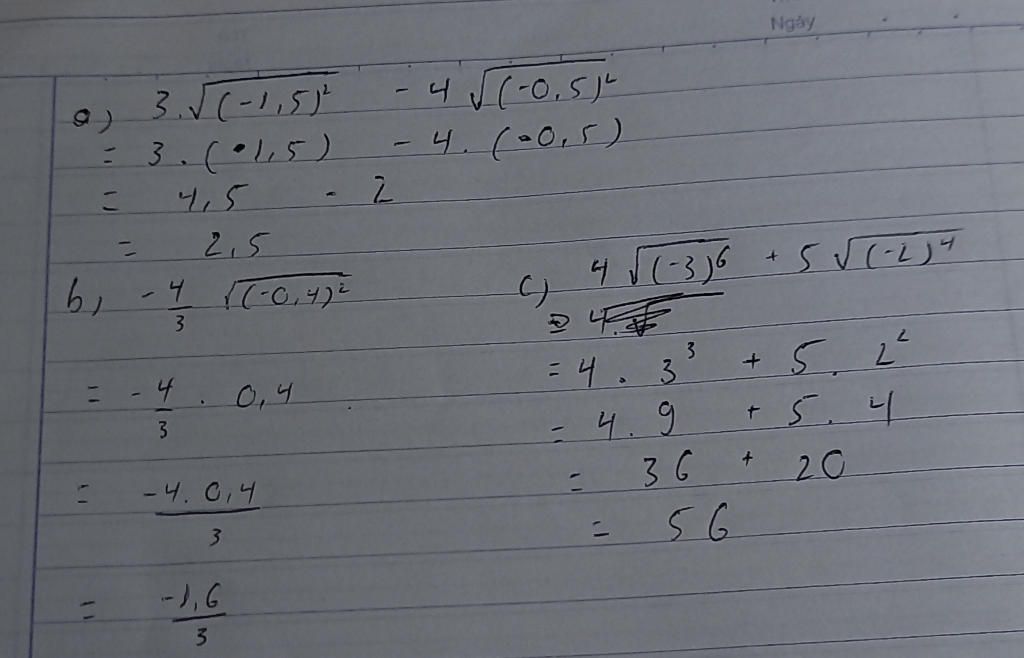 Ngày
a) 3.√(-1,5)² - 4√(-0,5)²
= 3.(•1,5) - 4.(-0,5)
= 4,5 - 2
= 2,5
b) -4/3 √(-0,4)²
= -4/3 . 0,4
= -4.0,4/3
= -1,6/3
c) 4√(-3)⁶ + 5√(-2)⁴
= 4.3³ + 5.2²
= 4.9 + 5.4
= 36 + 20
= 56